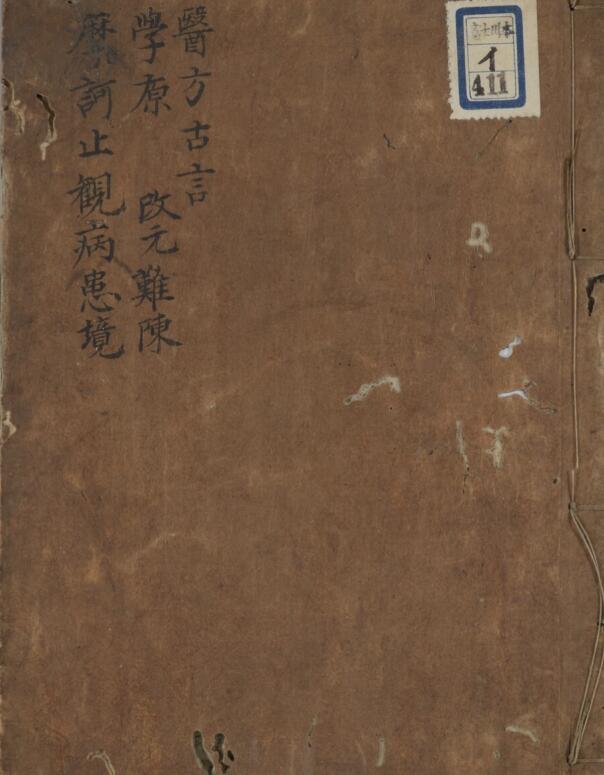 醫方古言
學原 改元難陳
摩訶止觀病患境
富士川本
イ
411